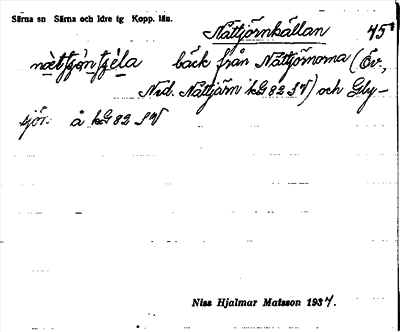 Särna sn Särna och Idre tg Kopp. län.
Nättjörnkällan 45
nættjø̀ntjéla bäck från Nättjörnorna (Öv.,
Ned. Nättjärn kG 82 SV) och Gly-
sjön å kG 82 SV
Niss Hjalmar Matsson 1937.